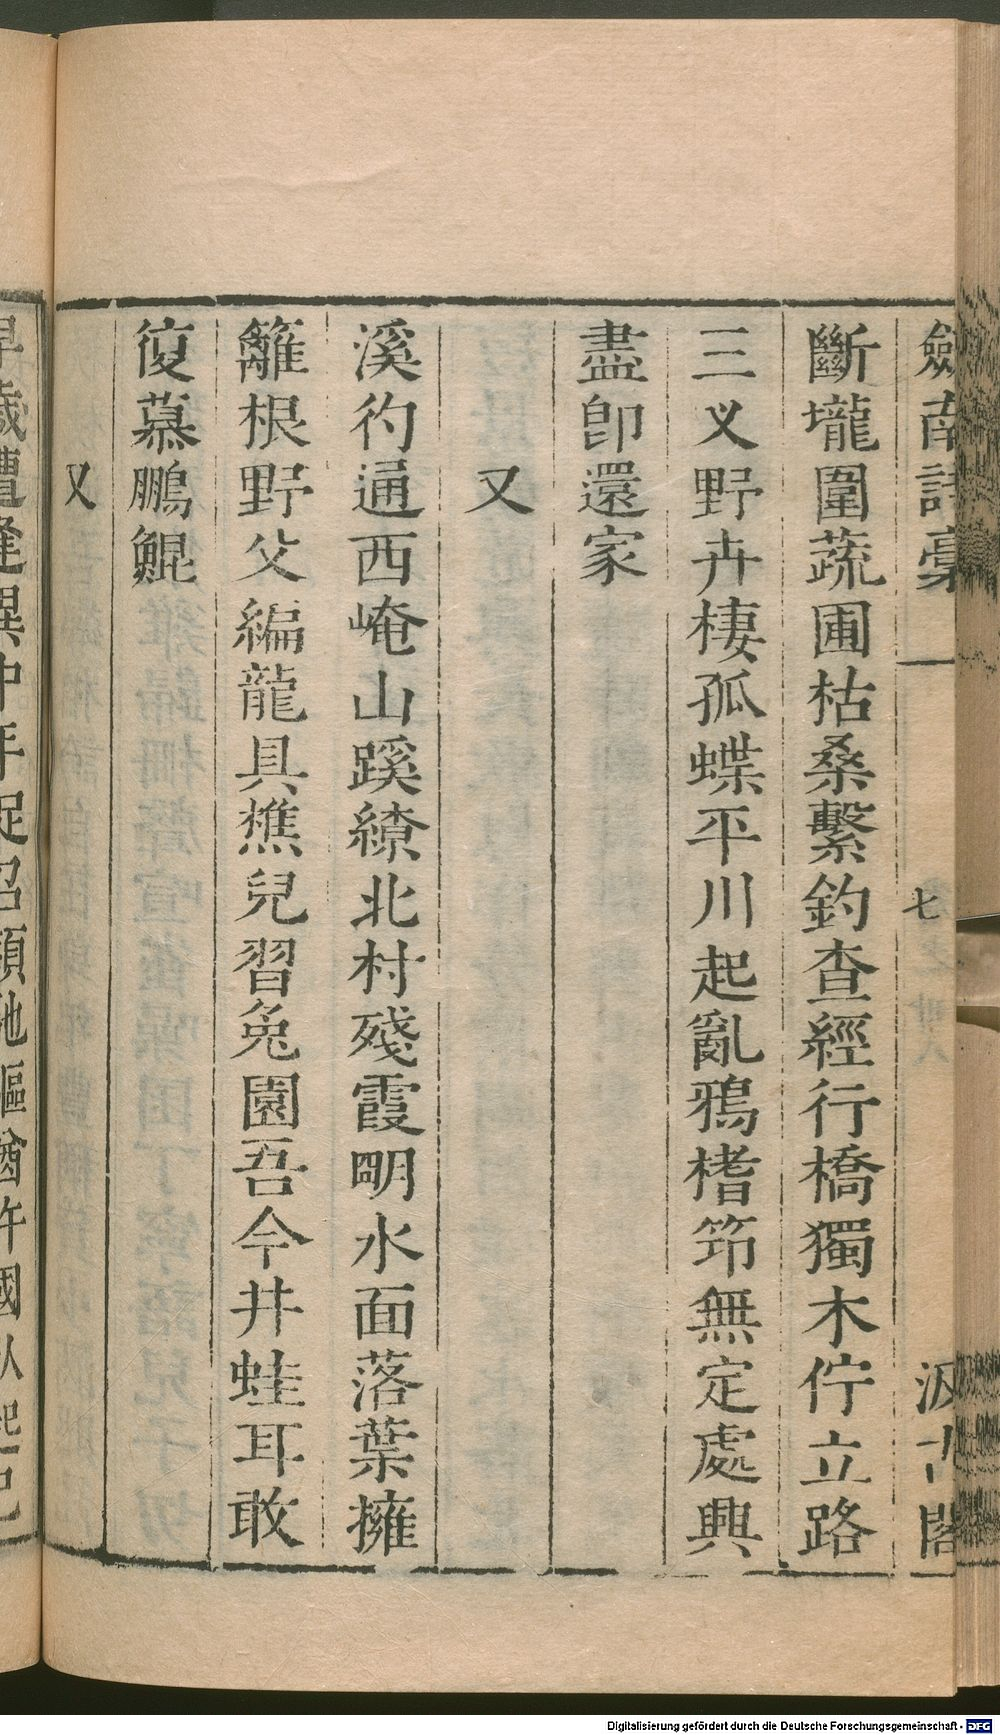 劍南詩稾 七 汲古閣
斷壠圍蔬圃枯桑繫釣查經行橋獨木佇立路
三义野卉棲孤蝶平川起亂鴉楮笻無定處興
盡卽還家
又
溪彴通西崦山蹊繚北村殘霞明水面落葉擁
籬根野父編龍具樵兒習兔園吾今井蛙耳敢
復慕鵬鯤
又
早歲遭逢異中年
Digitalisierung gefördert durch die Deutsche Forschungsgemeinschaft - DFG